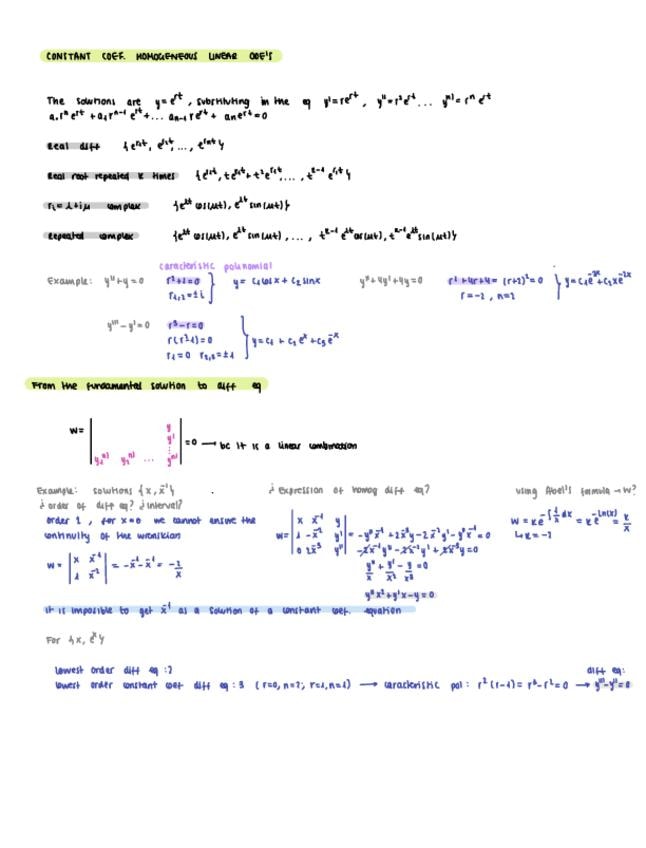 CONSTANT COEF. HOMOGENEOUS LINEAR ODE'S
The solutions are y=e^rt, substituting in the eq y'=re^rt, y''=r²e^rt ... y^n)=r^n e^rt
a₀r^n e^rt + a₁r^n-1 e^rt + ... a_n-1 r e^rt + a_n e^rt = 0
Real diff {e^r₁t, e^r₂t, ..., e^r_nt}
Real root repeated k times {e^r₁t, te^r₁t + t²e^r₁t, ..., t^k-1 e^r₁t}
r₁=λ+iμ complex {e^λt cos(μt), e^λt sin(μt)}
Repeated complex {e^λt cos(μt), e^λt sin(μt), ..., t^k-1 e^λt cos(μt), t^k-1 e^λt sin(μt)}
caracteristic polynomial
Example: y''+y=0 r²+1=0 y= c₁cosx + c₂sinx y''+4y'+4y=0 r²+4r+4=(r+2)²=0 y=c₁e^-2x+c₂xe^-2x
r₁,₂=±i r=-2, n=2
y'''-y'=0 r³-r=0
r(r²-1)=0 y=c₁ + c₂e^x + c₃e^-x
r₁=0 r₂,₃=±1
From the fundamental solution to diff eq
y
W= y' =0 → bc it is a linear combination
⋮
y₁^n) y₂^n) ... y^n)
Example: solutions {x, x⁻¹} ¿Expression of homog diff eq? using Abel's formula → W?
¿order of diff eq? ¿interval?
order 2, for x=0 we cannot ensure the
continuity of the wronskian
W= |x x⁻¹ y| |1 -x⁻² y'| |0 2x⁻³ y''| = -y''x⁻¹+2x⁻³y-2x⁻²y'-y''x⁻¹=0
-2x⁻¹y''-2x⁻²y'+2x⁻³y=0
W=ke^-∫1/x dx = ke^-ln(x) = k/x
↳k=-2
W= |x x⁻¹| |1 -x⁻²| = -x⁻¹-x⁻¹= -2/x
y''/x + y'/x² - y/x³ =0
y''x²+y'x-y=0
it is imposible to get x⁻¹ as a solution of a constant coef. equation
For {x, e^x}
lowest order diff eq :2 diff eq:
lowest order constant coef diff eq : 3 (r=0, n=2; r=1, n=1) → caracteristic pol: r²(r-1)= r³-r²=0 → y'''-y''=0